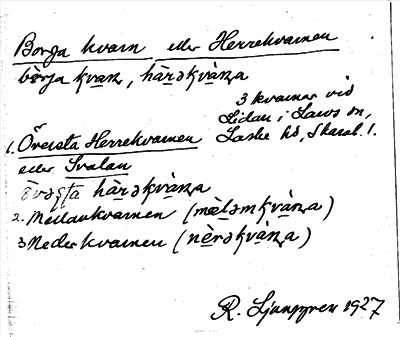 Borga kvarn eller Herrekvarnen
bòrja kvaɳ, hàrəkvàɳa
3 kvarnar vid
Lidan i Larvs sn,
Laske hd, Skarab. l.
1. Översta Herrekvarnen
eller Svalan
hàrəkvàɳa
2. Mellankvarnen (mæ̀ləmkvàɳa)
3 Nederkvarnen (nèrəkvàɳa)
R. Ljunggren 1927